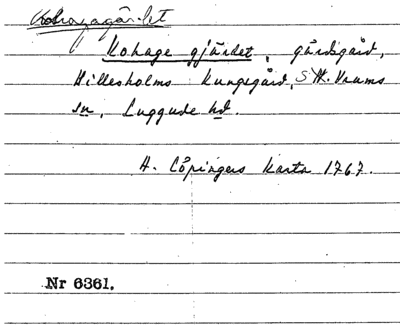 Kohagagärdet
Kohage gjärdet, gärdsgård,
Hillesholms Kungsgård, S. Vrams
sn, Luggude hd.
A. Löpingers karta 1767.
Nr 6361.